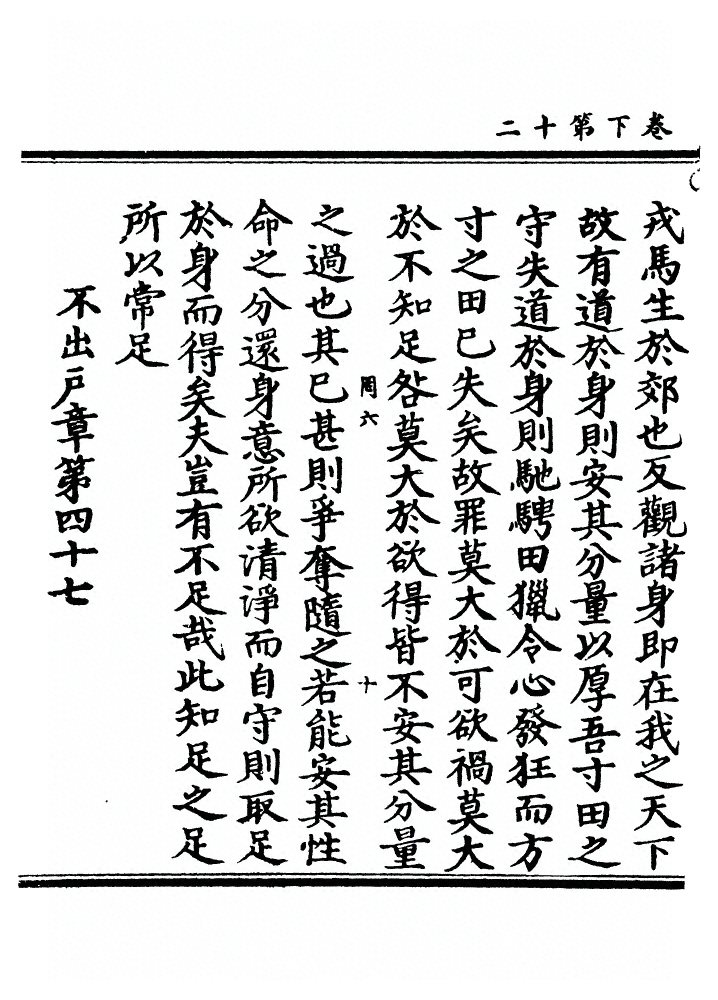 卷下第十二
戎馬生於郊也反觀諸身即在我之天下
故有道於身則安其分量以厚吾寸田之
守失道於身則馳騁田獵令心發狂而方
寸之田已失矣故罪莫大於可欲禍莫大
於不知足咎莫大於欲得皆不安其分量
周六
十
之過也其已甚則爭奪隨之若能安其性
命之分還身意所欲清淨而自守則取足
於身而得矣夫豈有不足哉此知足之足
所以常足
不出戶章第四十七